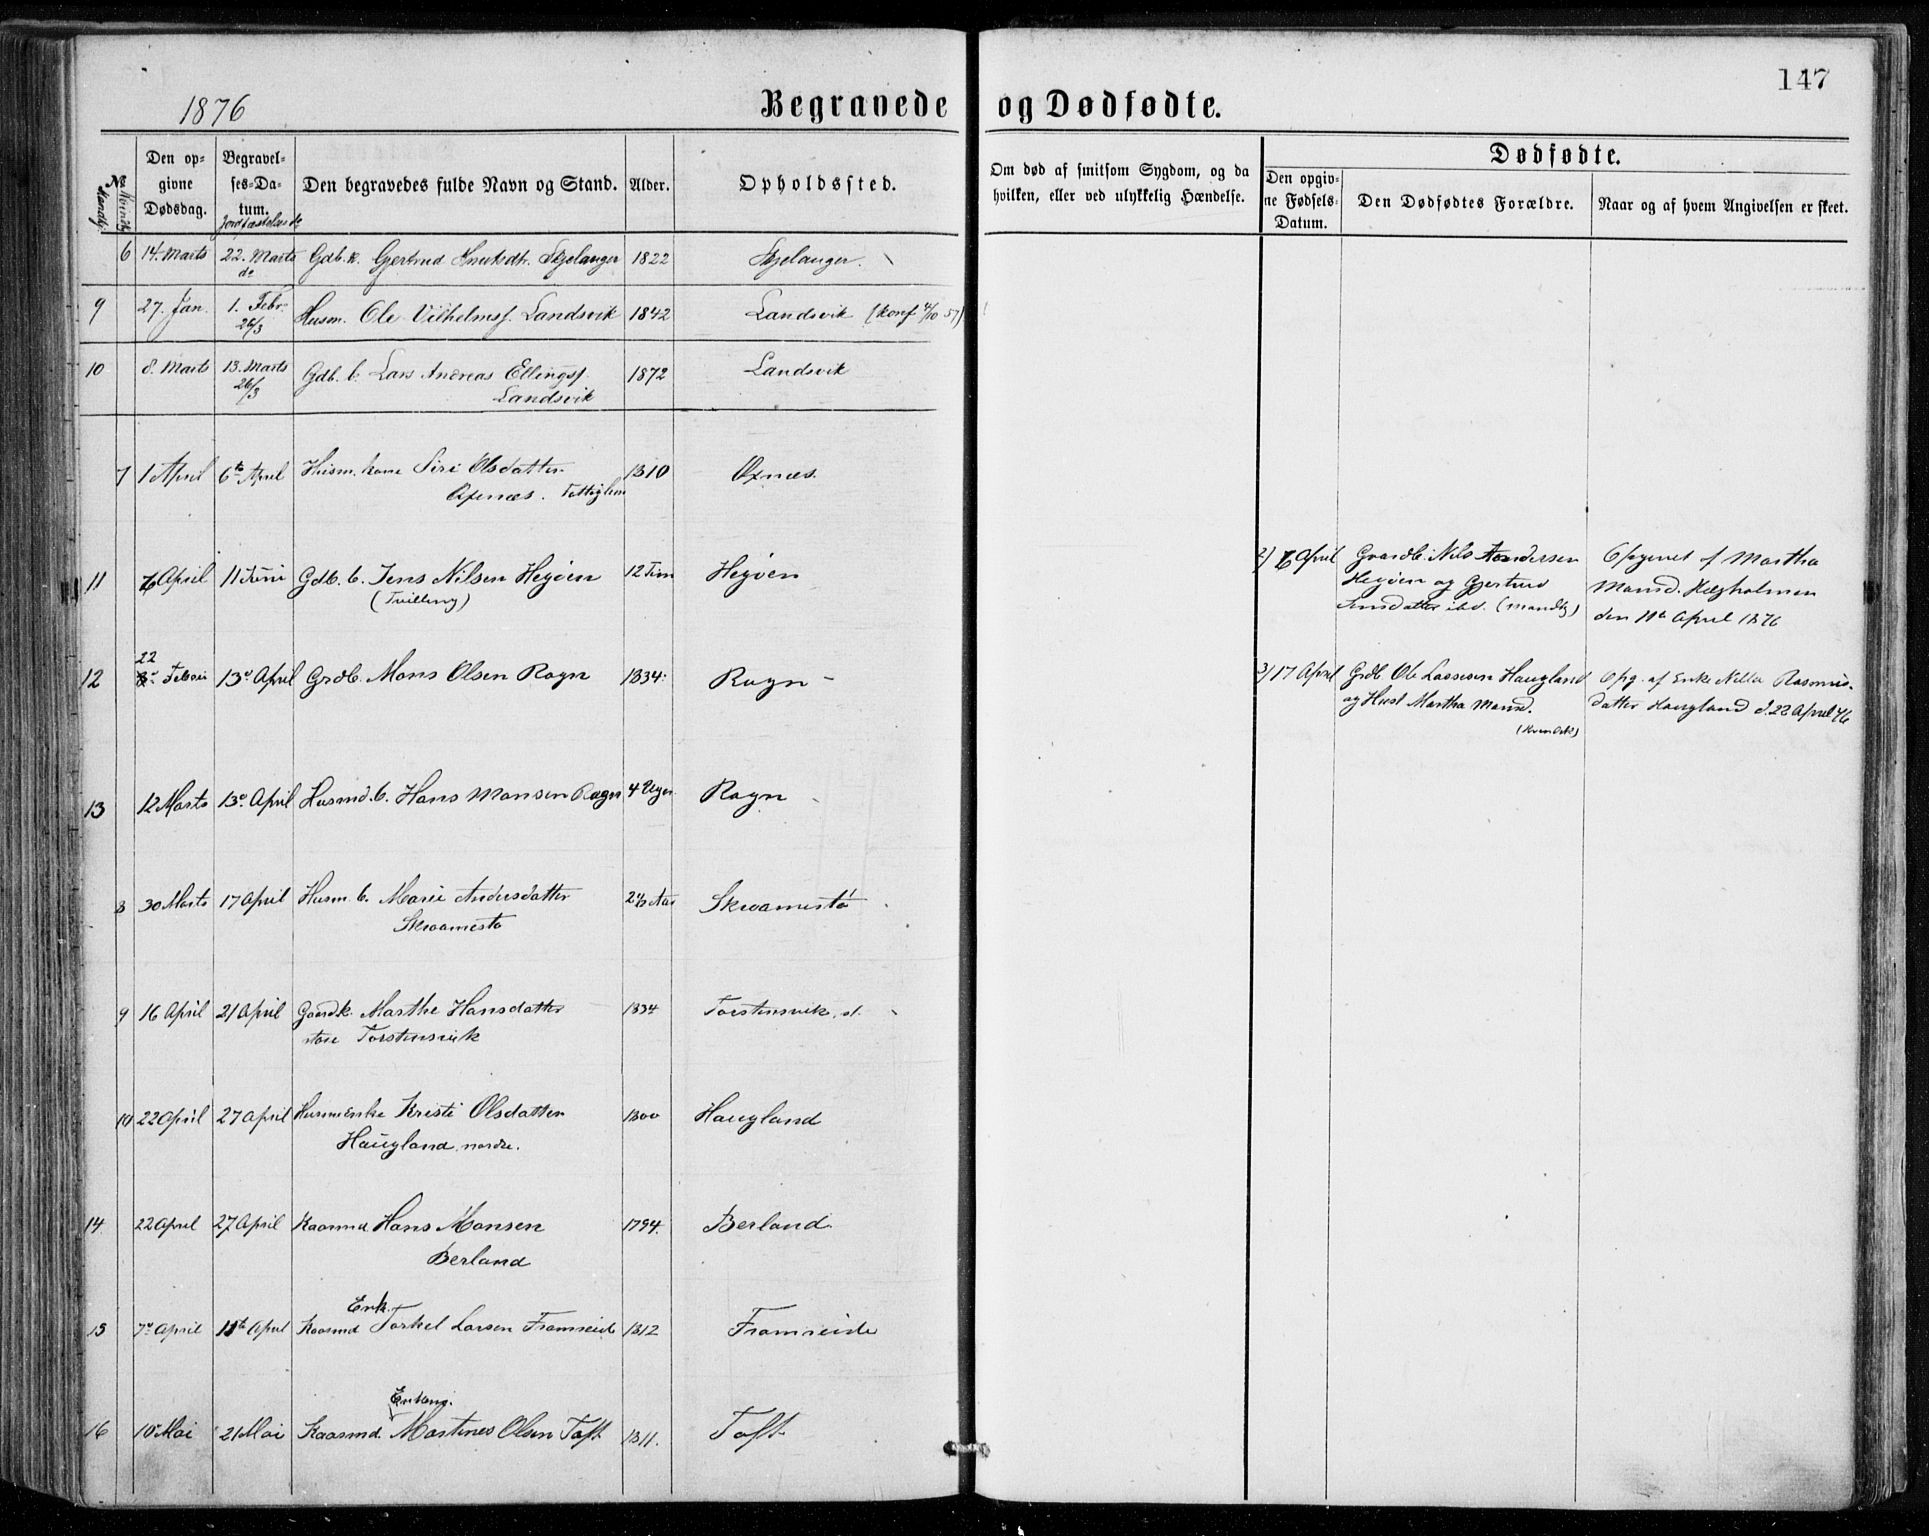 147
1876
Begravede og Dødfødte.
No Mandk. Kvindk.
Den opgivne Dødsdag.
Begravelses-Datum.
Jordfæstelse
Den begravedes fulde Navn og Stand.
Alder.
Opholdssted.
Om død af smitsom Sygdom, og da hvilken, eller ved ulykkelig Hændelse.
Dødfødte.
Den opgivne Fødsels-Datum.
Den Dødfødtes Forældre.
Naar og af hvem Angivelsen er skeet.
6 14. Marts 22. Marts Gdb. k. Gjertrud Knutsdtr. Skjelanger 1822 Skjelanger.
do
9 27. Jan. 1. Febr. Husm. Ole Vilhelmsf. Landsvik 1842 Landsvik (konf 4/10 57)
26/3
10 8. Marts 13. Marts Gdb. b. Lars Andreas Ellingsf. 1872 Landsvik
26/3 Landsvik
7 1 April 6te April Husm. kone Siri Olsdatter 1810 Oxnæs.
Oxnæs.
11 6 April 11 Juni Gdb. b. Jens Nilsen Hegöen 12 Tim Hegöen
(Tvilling)
2) 6 April Gaardb. Nils Andersen
Hegöen og Gjertrud
Jensdatter ibd. (Mandkj)
Opgivet af Martha
Monsd. Helgholmen
den 11te April 1876
22
12 Februi 13de April Grdb. Mons Olsen Rogn 1834. Rogn
3) 17 April Grdb Ole Lassesen Haugland
og Hust Martha Monsd.
(Kvindek)
Opg. af Enke Nilla Rasmus-
datter Haugland d. 22 April 76
13 12 Marts 13de April Husmd. b. Hans Monsen Rogn 4 Uger Rogn
8 30 Marts 17 April Husm. b. Marie Andersdatter Aar Skraamestö
Skraamestö
9 16 April 21 April Gaardk. Marthe Hansdatter 1834 Torstensvik
Torstensvik
10 22 April 27 April Husmenke Kristi Olsdatter 1800 Haugland
Haugland nordre.
14 22 April 27 April Kaarmd Hans Monsen 1794. Berland
Berland
Enk.
15 7de April 11te April Kaarmd Torkel Larsen Framreide 1812 Framreide
Enkemd.
16 10 Mai 21 Mai Kaarmd. Martines Olsen Toft 1811. Toft